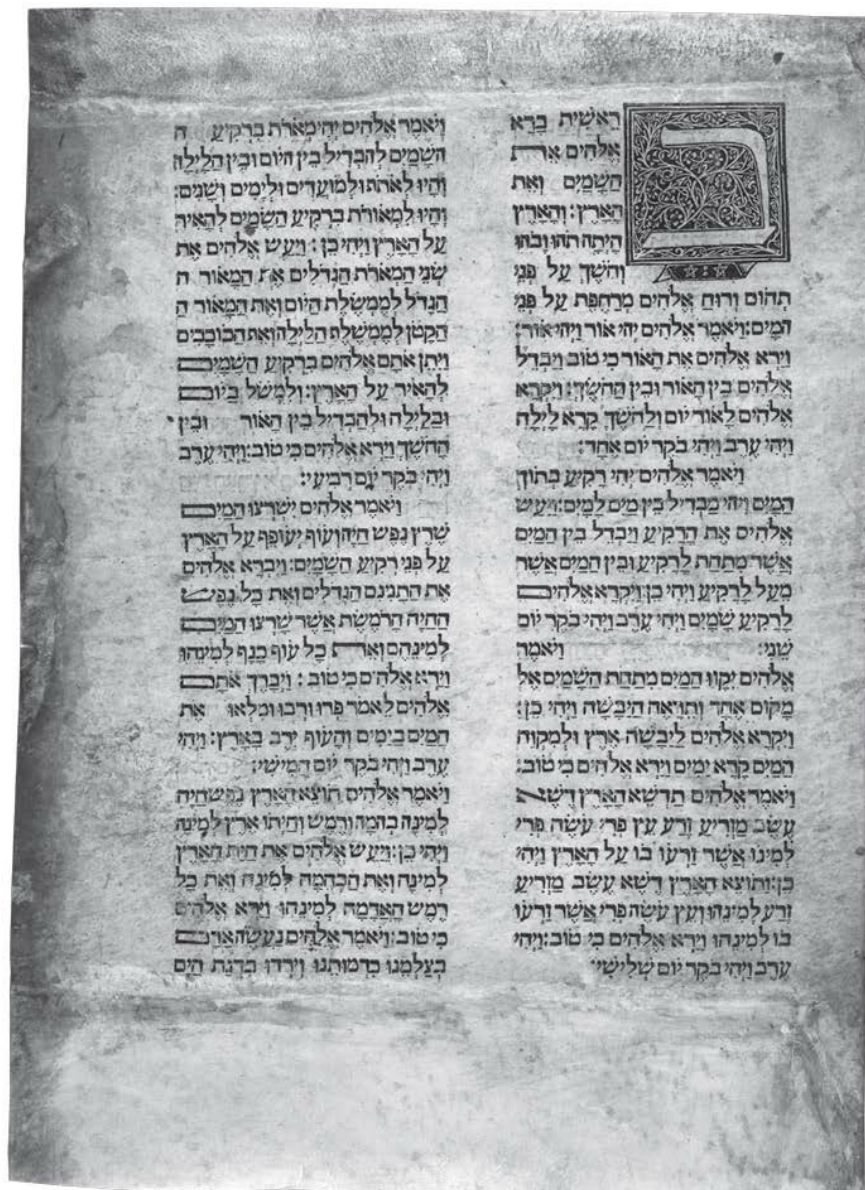 בראשית ברא
אלהים את
השמים ואת
הארץ: והארץ
היתה תהו ובהו
וחשך על פני
תהום ורוח אלהים מרחפת על פני
המים: ויאמר אלהים יהי אור ויהי אור:
וירא אלהים את האור כי טוב ויבדל
אלהים בין האור ובין החשך: ויקרא
אלהים לאור יום ולחשך קרא לילה
ויהי ערב ויהי בקר יום אחד:
ויאמר אלהים יהי רקיע בתוך
המים ויהי מבדיל בין מים למים: ויעש
אלהים את הרקיע ויבדל בין המים
אשר מתחת לרקיע ובין המים אשר
מעל לרקיע ויהי כן: ויקרא אלהים
לרקיע שמים ויהי ערב ויהי בקר יום
שני: ויאמר
אלהים יקוו המים מתחת השמים אל
מקום אחד ותראה היבשה ויהי כן:
ויקרא אלהים ליבשה ארץ ולמקוה
המים קרא ימים וירא אלהים כי טוב:
ויאמר אלהים תדשא הארץ דשא
עשב מזריע זרע עץ פרי עשה פרי
למינו אשר זרעו בו על הארץ ויהי
כן: ותוצא הארץ דשא עשב מזריע
זרע למינהו ועץ עשה פרי אשר זרעו
בו למינהו וירא אלהים כי טוב: ויהי
ערב ויהי בקר יום שלישי:
ויאמר אלהים יהי מארת ברקיע ה
השמים להבדיל בין היום ובין הלילה
והיו לאתת ולמועדים ולימים ושנים:
והיו למאורת ברקיע השמים להאיר
על הארץ ויהי כן: ויעש אלהים את
שני המארת הגדלים את המאור ה
הגדל לממשלת היום ואת המאור ה
הקטן לממשלת הלילה ואת הכוכבים
ויתן אתם אלהים ברקיע השמים
להאיר על הארץ: ולמשל ביום
ובלילה ולהבדיל בין האור ובין
החשך וירא אלהים כי טוב: ויהי ערב
ויהי בקר יום רביעי:
ויאמר אלהים ישרצו המים
שרץ נפש חיה ועוף יעופף על הארץ
על פני רקיע השמים: ויברא אלהים
את התנינם הגדלים ואת כל נפש
החיה הרמשת אשר שרצו המים
למינהם ואת כל עוף כנף למינהו
וירא אלהים כי טוב: ויברך אתם
אלהים לאמר פרו ורבו ומלאו את
המים בימים והעוף ירב בארץ: ויהי
ערב ויהי בקר יום חמישי:
ויאמר אלהים תוצא הארץ נפש חיה
למינה בהמה ורמש וחיתו ארץ למינה
ויהי כן: ויעש אלהים את חית הארץ
למינה ואת הבהמה למינה ואת כל
רמש האדמה למינהו וירא אלהים
כי טוב: ויאמר אלהים נעשה אדם
בצלמנו כדמותנו וירדו בדגת הים